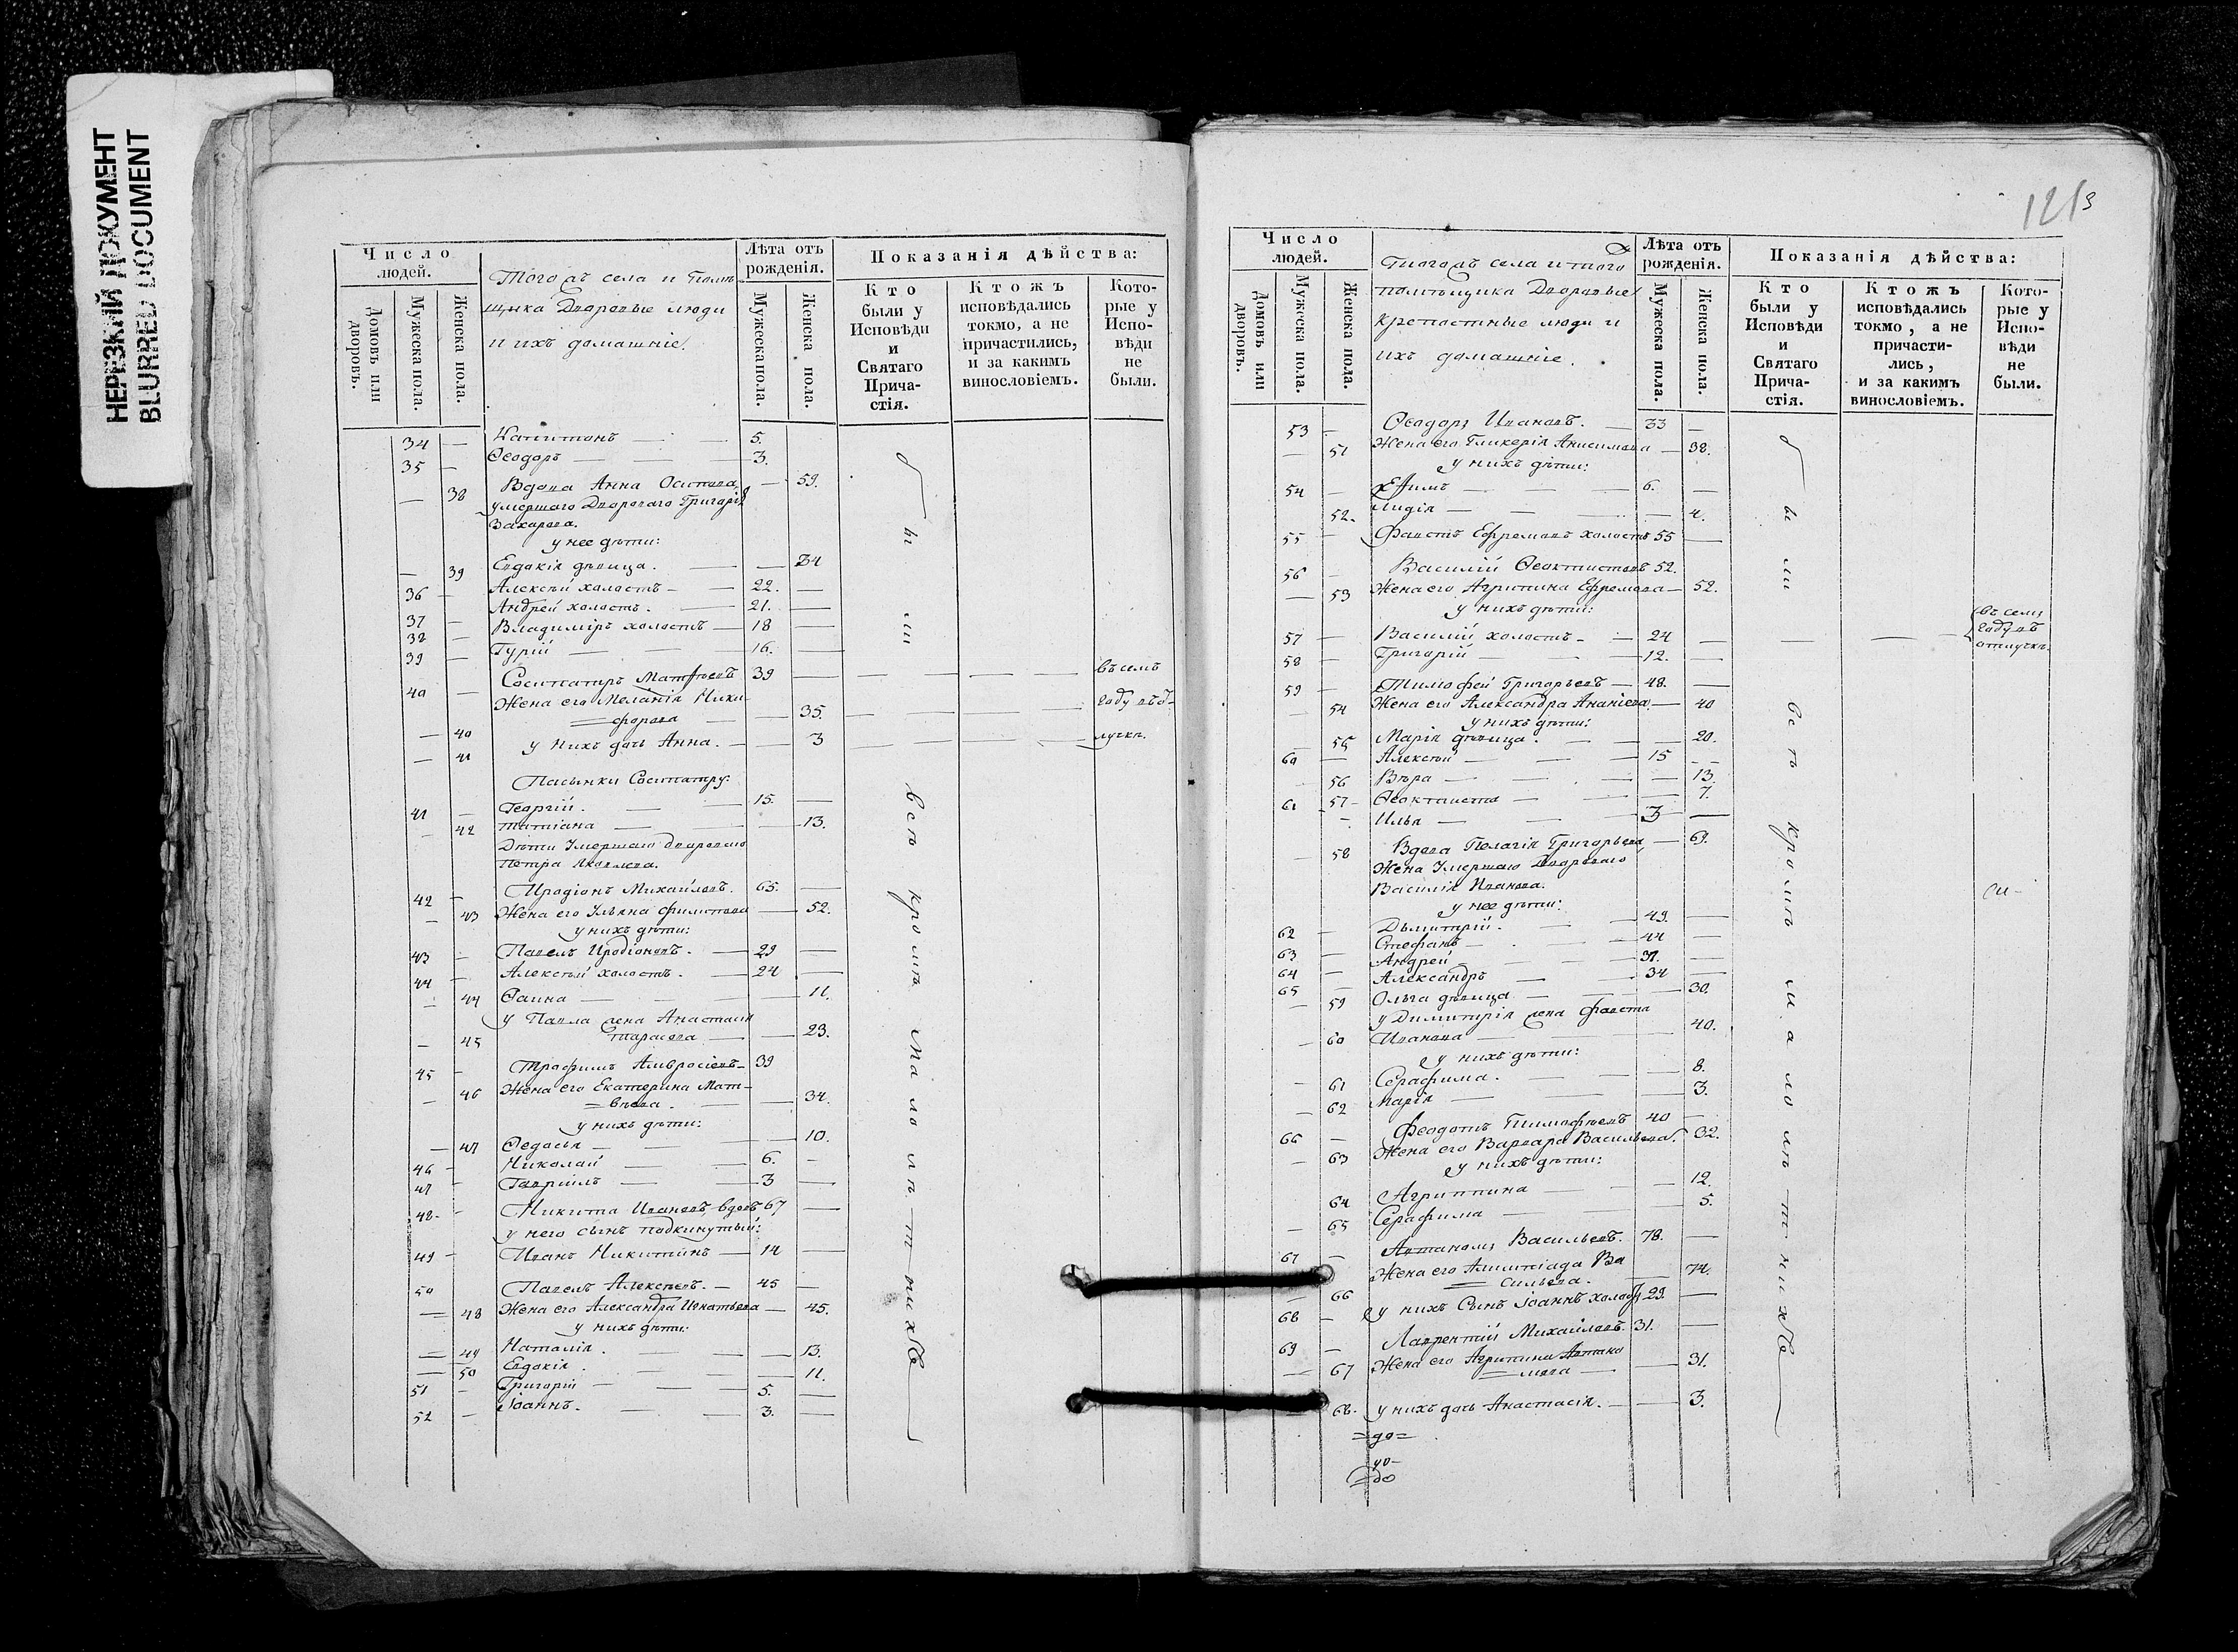 НЕРЕЗКИЙ ДОКУМЕНТ
BLURRED DOCUMENT
Число людей.
Домовъ или дворовъ.
Мужеска пола.
Женска пола.
Тогожъ села и Помѣ-
щика Дворовые люди
и ихъ домашніе.
Лѣта отъ рожденія.
Мужеска пола.
Женска пола.
Показанія дѣйства:
Кто были у Исповѣди и Святаго Прича-стія.
Ктожъ исповѣдались токмо, а не причастились, и за какимъ винословіемъ.
Кото-рые у Испо-вѣди не были.
34 — Капитонъ — — 5.
35 — Ѳеодоръ — — 3.
— 38 Вдова Анна Осипова — 59.
умершаго Двороваго Григорія
Захарова.
у нее дѣти:
— 39 Евдокія дѣвица. — — 34
36 — Алексѣй холостъ — — 22. —
37 — Андрей холостъ. — 21. —
38 — Владиміръ холостъ — 18 —
39 — Гурій — — 16. —
40 — Сосипатръ Матѳѣевъ 39 — — — въ семъ
Жена его Меланія Ники-
— 40 =форова — — 35. — — — году въ
— 41 у нихъ дочь Анна. — — 3 — — — лучкѣ.
Пасынки Сосипатру:
41 — Георгій. — — 15. —
— 42 Татіана — — 13.
Дѣти Умершаго двороваго
Петра Яковлева.
42 — Иродіонъ Михайловъ. 65. —
— 43 Жена его Ульяна Филипова — 52.
у нихъ дѣти:
43 — Павелъ Иродіоновъ. — 29 —
44 — Алексѣй холостъ. — 24 —
— 44 Ѳаина — — 11.
у Павла жена Анастасія
— 45 Тарасова — — 23.
45 — Трофимъ Амвросіевъ — 39
— 46 Жена его Екатерина Мат-
=вѣева. — — 34.
у нихъ дѣти:
— 47 Ѳедосья — — 10.
46 — Николай — — 6. —
47 — Гавріилъ — — 3 —
48 — Никита Ивановъ вдовъ 67 —
у него сынъ подкинутый:
49 — Иванъ Никитинъ — 14 —
50 — Павелъ Алексѣевъ. — 45 —
— 48 Жена его Александра Игнатьева — 45.
у нихъ дѣти:
— 49 Наталія. — — 13.
— 50 Евдокія. — — 11.
51 — Григорій — — 5. —
52 — Іоаннъ. — — 3. —
были всѣ кромѣ малолѣтнихъ
121
Число людей.
Домовъ или дворовъ.
Мужеска пола.
Женска пола.
Тогожъ села и того
помѣщика Дворовые
крепостные люди и
ихъ домашніе.
Лѣта отъ рожденія.
Мужеска пола.
Женска пола.
Показанія дѣйства:
Кто были у Исповѣди и Святаго Прича-стія.
Ктожъ исповѣдались токмо, а не причасти-лись, и за какимъ винословіемъ.
Кото-рые у Испо-вѣди не были.
53 — Ѳеодоръ Ивановъ. — 33 —
— 51 Жена его Гликерія Анисимова — 38.
у нихъ дѣти:
54 — Ефимъ — — 6. —
52. Лидія — — 4.
55 — Фавстъ Ефремовъ холостъ 55 —
56 — Василій Ѳеоктистовъ 52.
— 53 Жена его Агрипина Ефремова — 52.
у нихъ дѣти:
57 — Василій холостъ — — 24 — — — въ семъ году въ отлучкѣ.
58 — Григорій — — 12. —
59 — Тимофей Григорьевъ — 48. —
— 54 Жена его Александра Ананіева — 40
у нихъ дѣти:
— 55 Марія дѣвица. — — 20.
60 — Алексѣй — — 15 —
56 Вѣра — — 13.
57 — Ѳеоктиста — — 7.
61 — Илья — — 3 —
— 58 Вдова Пелагія Григорьева — 69.
Жена Умершаго Двороваго
Василія Иванова.
у нее дѣти:
62 — Дьмитрій. — 49. —
63 — Стефанъ — — 44 —
64 — Андрей — — 37. —
65 — Александръ — — 34 —
— 59 Ольга дѣвица — — 30.
у Димитрія жена Фавста
— 60 Иванова — — 40.
у нихъ дѣти:
— 61 Серафима. — — 8.
— 62 Марія — — 3.
66 — Феодотъ Тимофѣевъ 40 —
— 63 Жена его Варвара Васильева. 32.
у нихъ дѣти:
64 Агриппина — — 12.
— 65 Серафима — — 5.
67 — Автаномъ Васильевъ. 78. —
Жена его Алимпіада Ва
— 66 =сильева. — — 74.
68 — у нихъ Сынъ Іоаннъ холостъ 29. —
69 — Лаврентій Михайловъ. 31. —
— 67 Жена его Агрипина Автано
=мова — — 31.
68. у нихъ дочь Анастасія. — — 3.
=до=
были всѣ кромѣ малолѣтнихъ